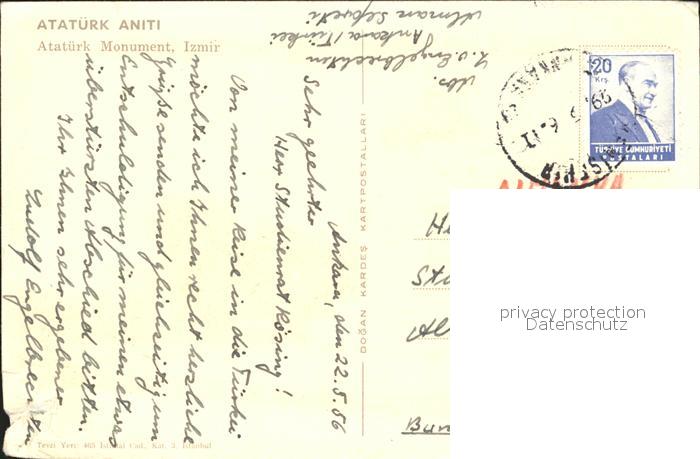 ATATÜRK ANITI
Atatürk Monument, Izmir
Abs.
L. v. Engelbrechten
Ankara / Türkei
Alman Sefareti
Ankara, den 22.5.56
Sehr geehrter
Herr Studienrat Rösing!
Von meiner Reise in die Türkei
möchte ich Ihnen recht herzliche
Grüße senden und gleichzeitig um
Entschuldigung für meinen etwas
überstürzten Abschied bitten.
Ihr Ihnen sehr ergebener
Ludolf Engelbrechten
DOĞAN KARDEŞ KARTPOSTALLARI
Tevzi Yeri: 465 İstiklal Cad., Kat. 3, İstanbul
20
Krş.
TÜRKİYE CUMHURİYETİ
POSTALARI
YENİŞEHİR
ANKARA
privacy protection
Datenschutz